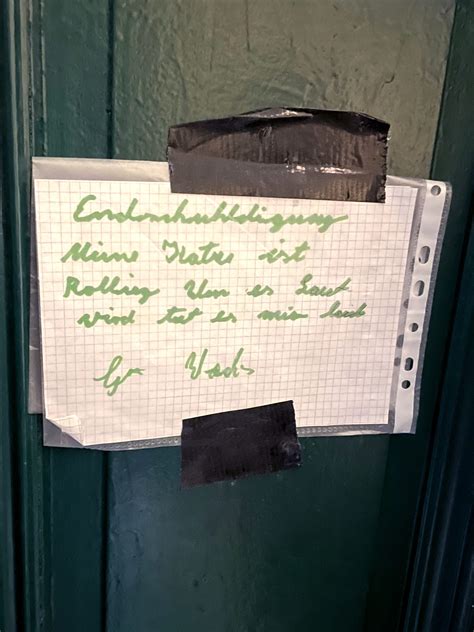 Endschuhldigung
Meine Katze ist
Rollig Wen es Laut
wird tut es mir leid